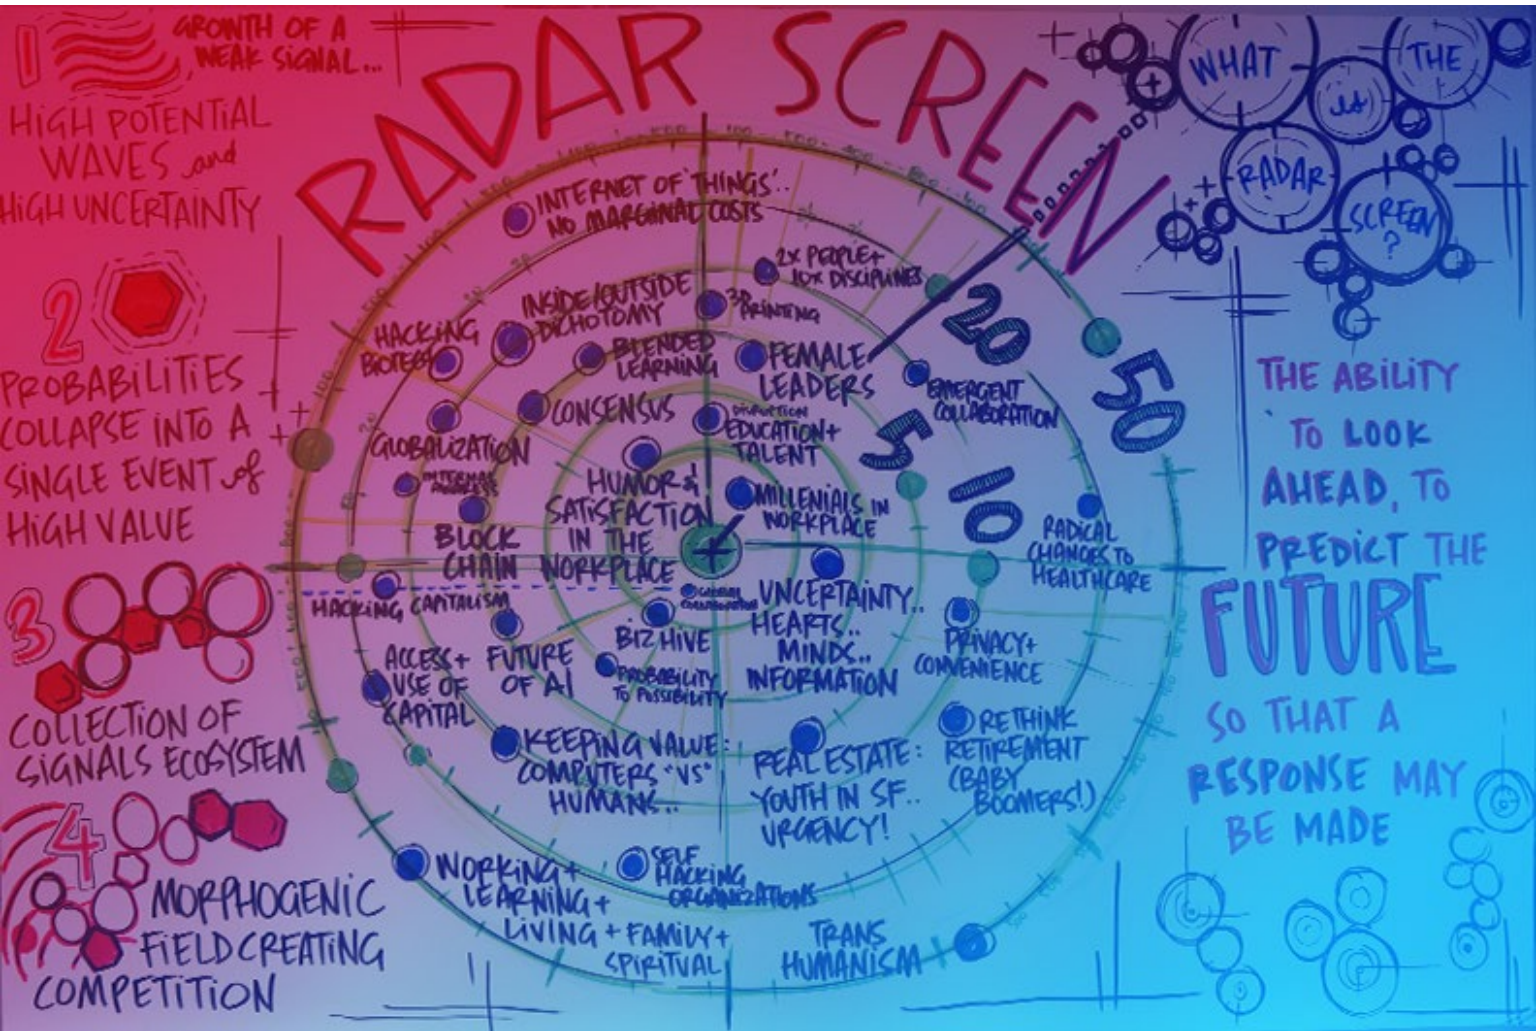 RADAR SCREEN
1
GROWTH OF A
WEAK SIGNAL...
HIGH POTENTIAL
WAVES and
HIGH UNCERTAINTY
2
PROBABILITIES
COLLAPSE INTO A
SINGLE EVENT of
HIGH VALUE
3
COLLECTION OF
SIGNALS ECOSYSTEM
4
MORPHOGENIC
FIELD CREATING
COMPETITION
INTERNET OF 'THINGS'..
NO MARGINAL COSTS
2X PEOPLE +
10X DISCIPLINES
INSIDE/OUTSIDE
DICHOTOMY
3D PRINTING
HACKING
BIOTECH
BLENDED
LEARNING
FEMALE
LEADERS
EMERGENT
COLLABORATION
CONSENSUS
DISRUPTION
EDUCATION +
TALENT
GLOBALIZATION
HUMOR &
SATISFACTION
IN THE
WORKPLACE
MILLENIALS IN
WORKPLACE
BLOCK
CHAIN
RADICAL
CHANGES TO
HEALTHCARE
HACKING CAPITALISM
GLOBAL
COLLABORATION
UNCERTAINTY..
HEARTS..
MINDS..
INFORMATION
BIZ HIVE
PRIVACY +
CONVENIENCE
ACCESS +
USE OF
CAPITAL
FUTURE
OF AI
PROBABILITY
TO POSSIBILITY
KEEPING VALUE:
COMPUTERS "VS"
HUMANS...
REAL ESTATE:
YOUTH IN SF..
URGENCY!
RETHINK
RETIREMENT
(BABY
BOOMERS!)
WORKING +
LEARNING +
LIVING + FAMILY +
SPIRITUAL
SELF
HACKING
ORGANIZATIONS
TRANS
HUMANISM
5
10
20
50
WHAT
is
THE
RADAR
SCREEN
?
THE ABILITY
TO LOOK
AHEAD, TO
PREDICT THE
FUTURE
SO THAT A
RESPONSE MAY
BE MADE